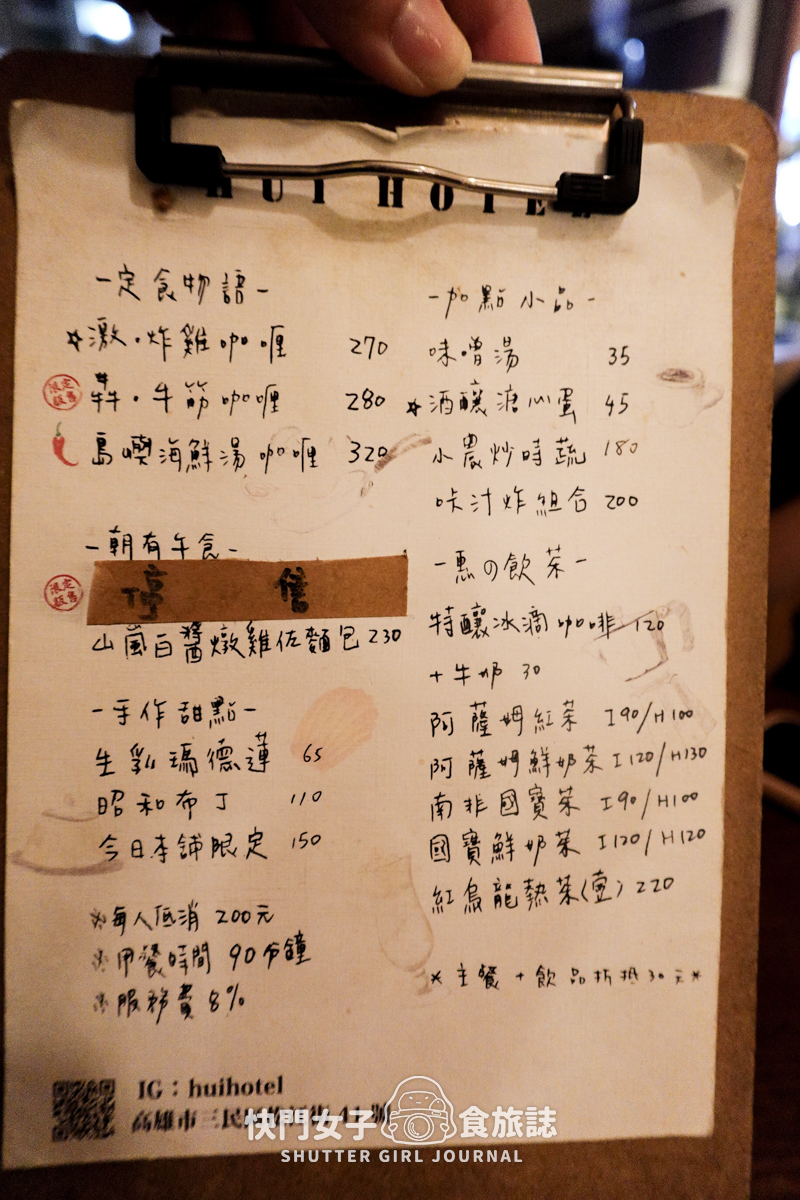 HUI HOTEL
－定食物語－
☆激・炸雞咖喱 270
限定販售
犇・牛筋咖喱 280
島嶼海鮮湯咖喱 320
－朝有午食－
限定販售
停售
山嵐白醬燉雞佐麵包 230
－手作甜點－
生乳瑪德蓮 65
昭和布丁 110
今日本舖限定 150
※每人低消 200元
※用餐時間 90分鐘
※服務費 8%
－加點小品－
味噌湯 35
☆酒釀溏心蛋 45
小農炒時蔬 180
咔汁炸組合 200
－惠の飲茶－
特釀冰滴咖啡 120
+牛奶 30
阿薩姆紅茶 I90/H100
阿薩姆鮮奶茶 I120/H130
南非國寶茶 I90/H100
國寶鮮奶茶 I120/H120
紅烏龍熱茶(壺) 220
*主餐+飲品折抵30元*
IG：huihotel
高雄市三民
快門女子 食旅誌
SHUTTER GIRL JOURNAL